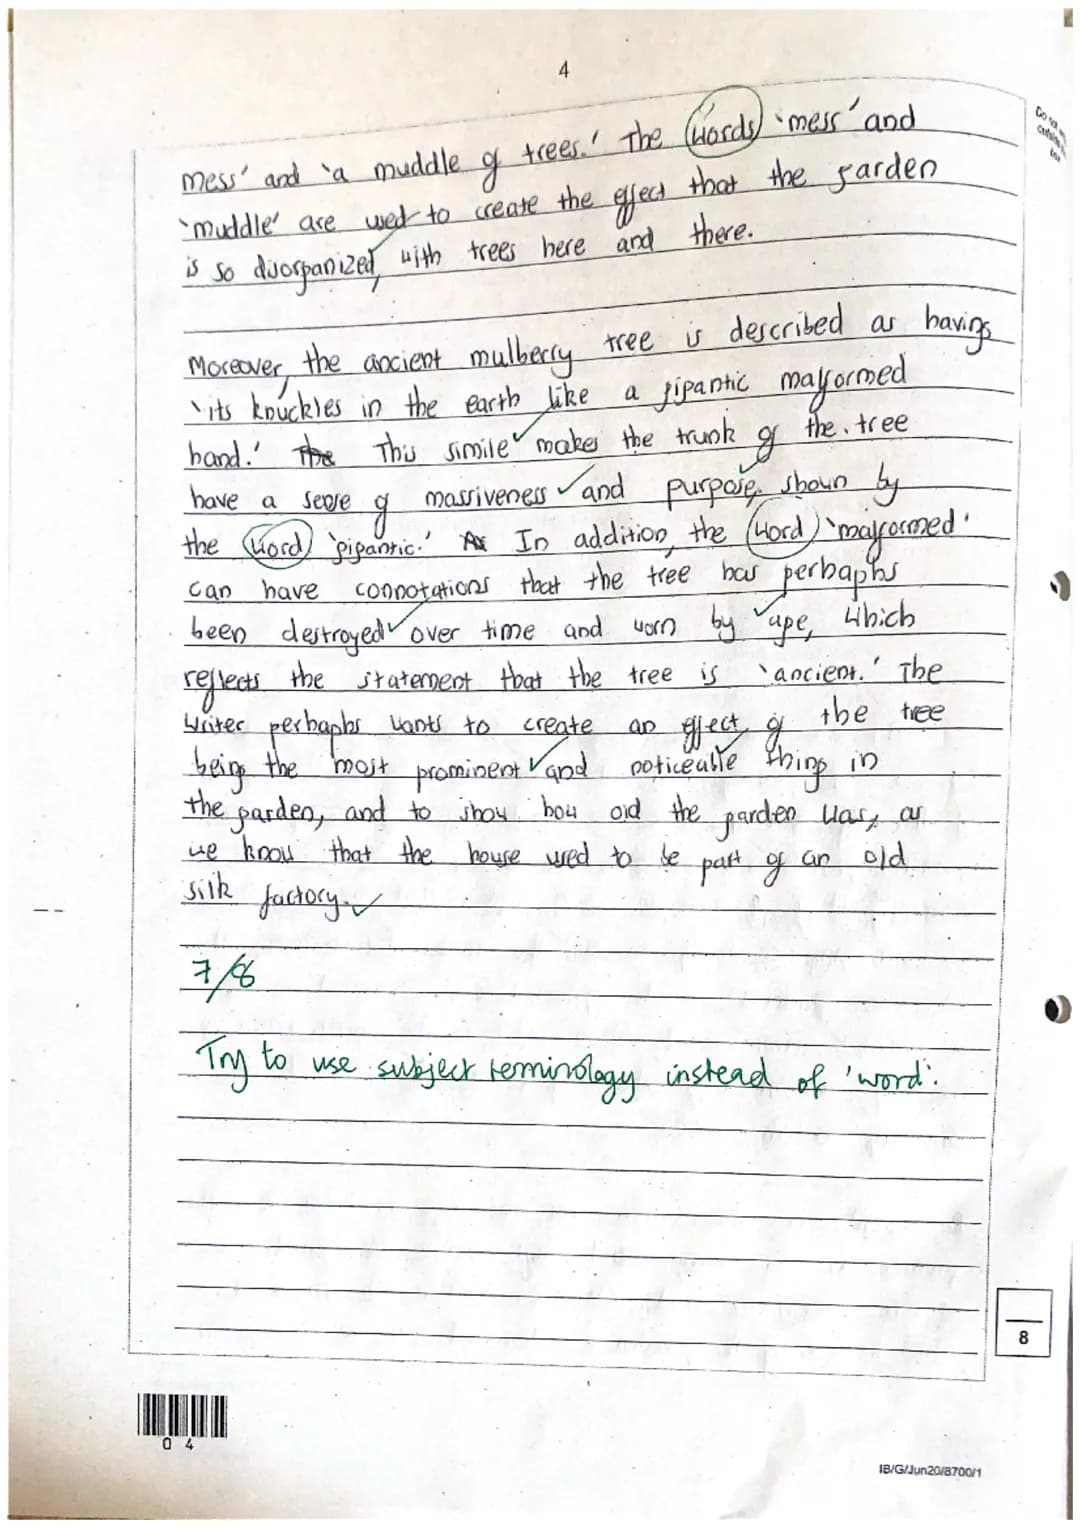 4
Do not write
outside the
box
mess' and 'a muddle of trees.' The words 'mess' and
'muddle' are used to create the effect that the garden
is so disorganized, with trees here and there.
Moreover, the ancient mulberry tree is described as having
'its knuckles in the earth like a gigantic malformed
hand.' The This simile makes the trunk of the tree
have a sense of massiveness and purpose, shown by
the word 'gigantic.' As In addition, the word 'malformed'
can have connotations that the tree has perhaphs
been destroyed over time and worn by age, which
reflects the statement that the tree is 'ancient.' The
writer perhaphs wants to create an effect of the tree
being the most prominent and noticeable thing in
the garden, and to show how old the garden was, as
we know that the house used to be part of an old
silk factory.
7/8
Try to use subject terminology instead of 'word'.
8
0 4
IB/G/Jun20/8700/1